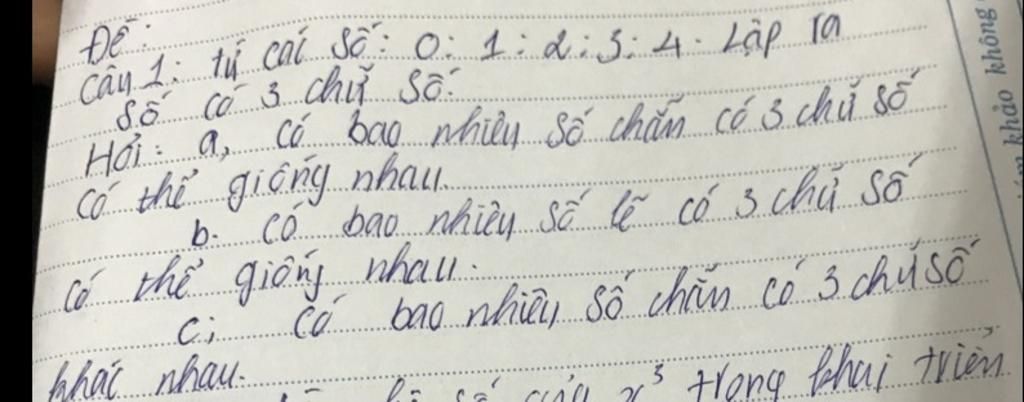 Đề:
Câu 1: từ cái số: 0: 1: 2: 3: 4. Lập ra
số có 3 chữ số.
Hỏi: a, có bao nhiêu số chẵn có 3 chữ số
có thể giống nhau.
b. có bao nhiêu số lẽ có 3 chữ số
có thể giống nhau.
c; Có bao nhiêu số chẵn có 3 chữ số
khác nhau.
số của x³ trong khai triển
khảo không